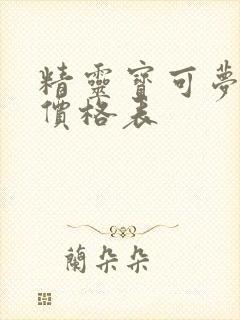 精靈寶可夢
價格表
蘭朵朵